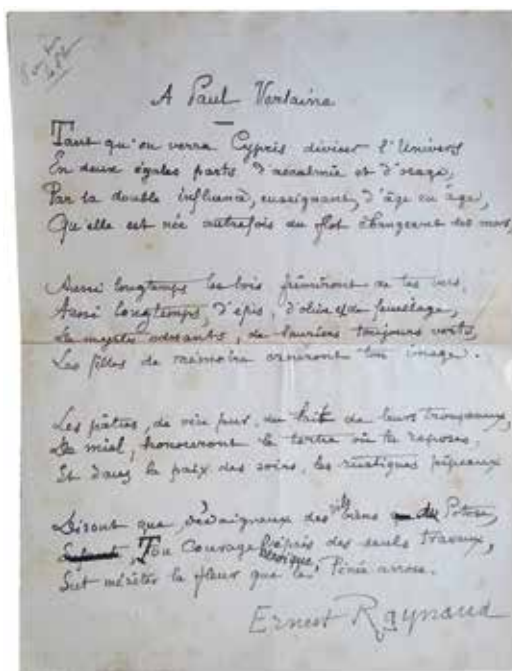 A Paul Verlaine
Tant qu'on verra Cypris diviser l'Univers
En deux égales parts d'accalmie et d'orage,
Par sa double influence, enseignant, d'âge en âge,
Qu'elle est née autrefois du flot changeant des mers,
Aussi longtemps les bois frémiront de tes vers,
Aussi longtemps, d'épis, d'olive et de feuillage,
De myrtes odorants, de lauriers toujours verts,
Les filles de mémoire orneront ton image.
Les pâtres, de vin pur, du lait de leurs troupeaux,
De miel, honoreront le tertre où tu reposes,
Et dans la paix des soirs, les rustiques pipeaux
Diront que, dédaigneux des biens
Ton Courage héroïque, épris des seuls travaux,
Sut mériter la fleur que le Pénée arrose.
Ernest Raynaud